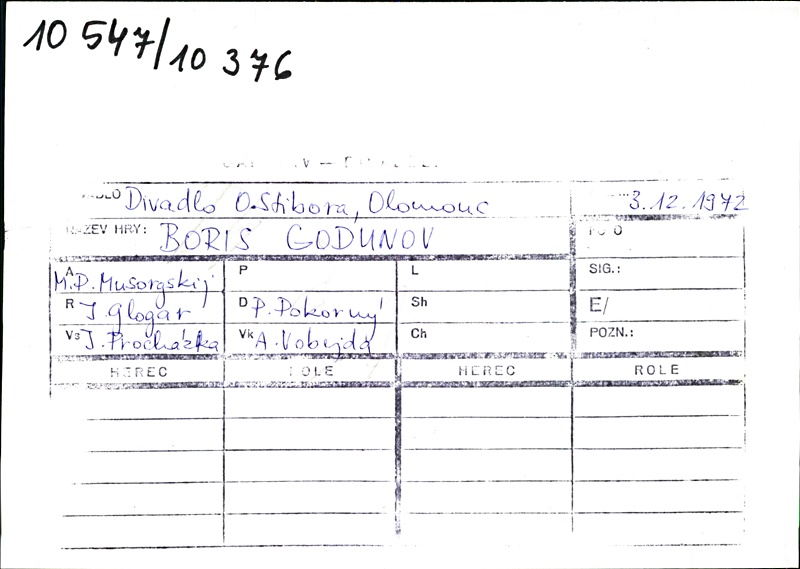 10 547/10 376
Divadlo O.Stibora, Olomouc 3.12.1972
NÁZEV HRY: BORIS GODUNOV
A M.P. Musorgskij P L SIG.:
R J. Glogar D P. Pokorný Sh E/
Vs J. Procházka Vk A. Vobejda Ch POZN.:
HEREC ROLE HEREC ROLE